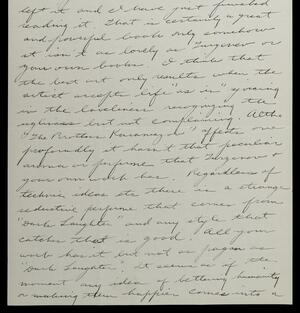 left it and I have just finished
reading it. That is certainly a great
and powerful book only somehow
it isn't as lovely as Turgenev or
your own books. I think that
the best art only results when the
artist accepts life "as is" glorying
in the loveliness recognizing the
ugliness but not complaining. Altho
"The Brothers Karamazov" affects one
profoundly it hasn't that peculiar
aroma or perfume that Turgenev &
your own work has. Regardless of
technic ideas etc there is a strange
seductive perfume that comes from
"Dark Laughter" and any style that
catches that is good. All your
work has it but not so pagan as
"Dark Laughter". It seems as if the
moment any idea of bettering humanity
or making them happier comes into a